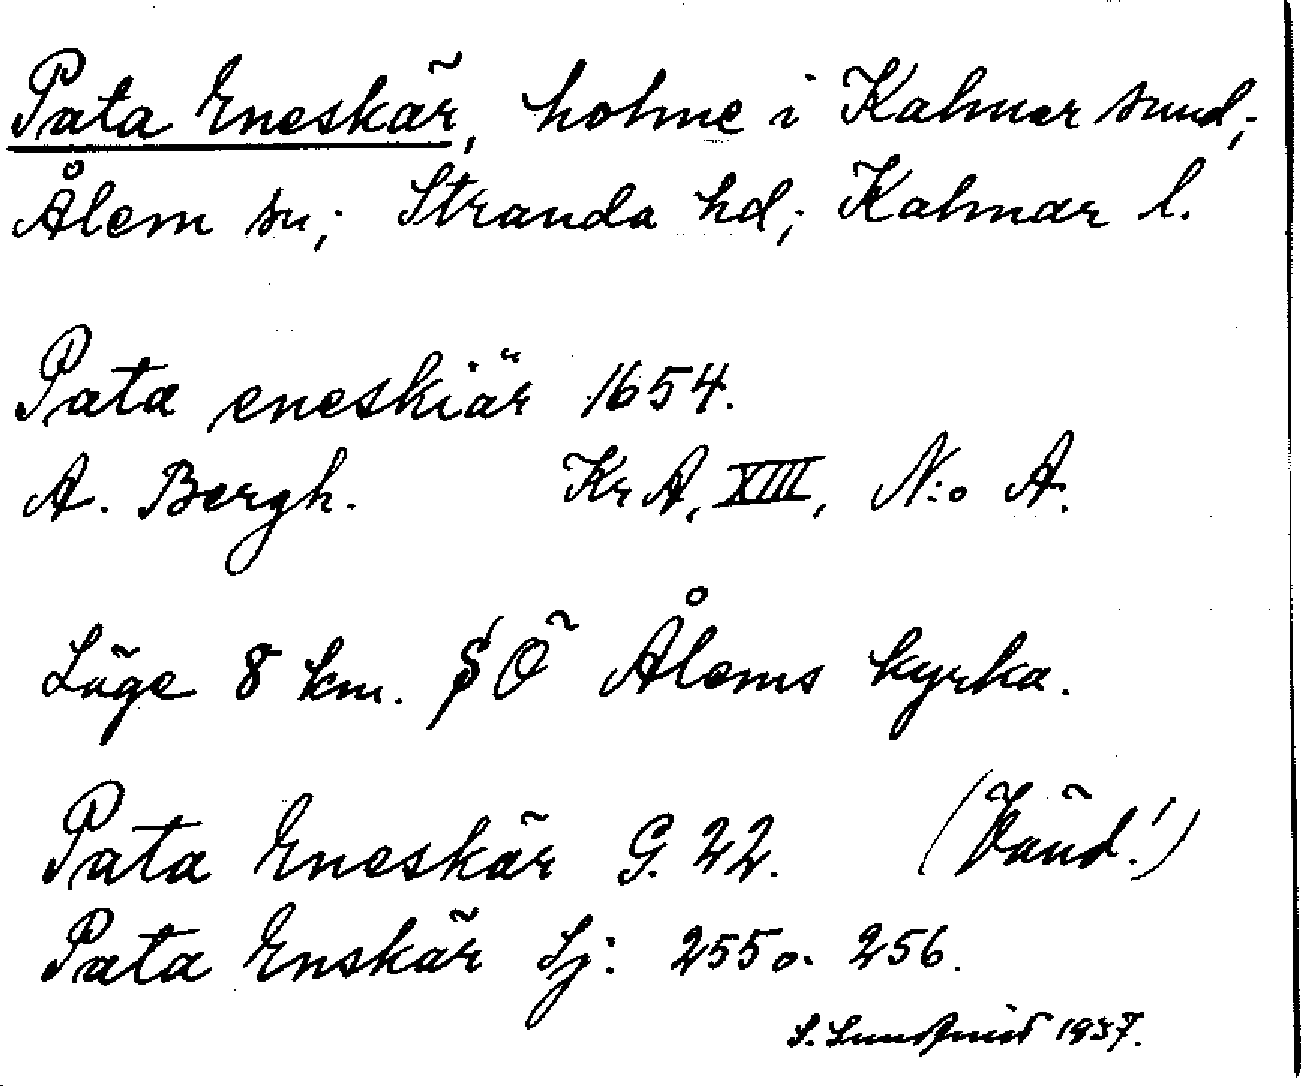 Pata Eneskär, holme i Kalmar sund;
Ålem sn; Stranda hd; Kalmar l.
Pata eneskiär 1654.
A. Bergh. KrA, XIII, N:o A.
Läge 8 km. SÖ Ålems kyrka.
Pata Eneskär G. 22. (Vänd!)
Pata Enskär Sj: 255 o. 256.
S. Lundqvist 1937.